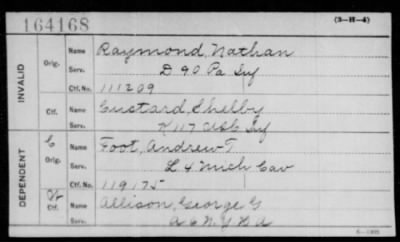 164168
(3-H-4)
INVALID
Orig. Name Raymond, Nathan
Serv. D 90 Pa Inf
Ctf. No. 111209
Ctf. Name Custard, Shelby
Serv. K 117 USC Inf
DEPENDENT
C Orig. Name Foot, Andrew T
Serv. L 4 Mich Cav
Ctf. No. 119175
W Ctf. Name Allison, George G
Serv. A 6 N.Y. H A